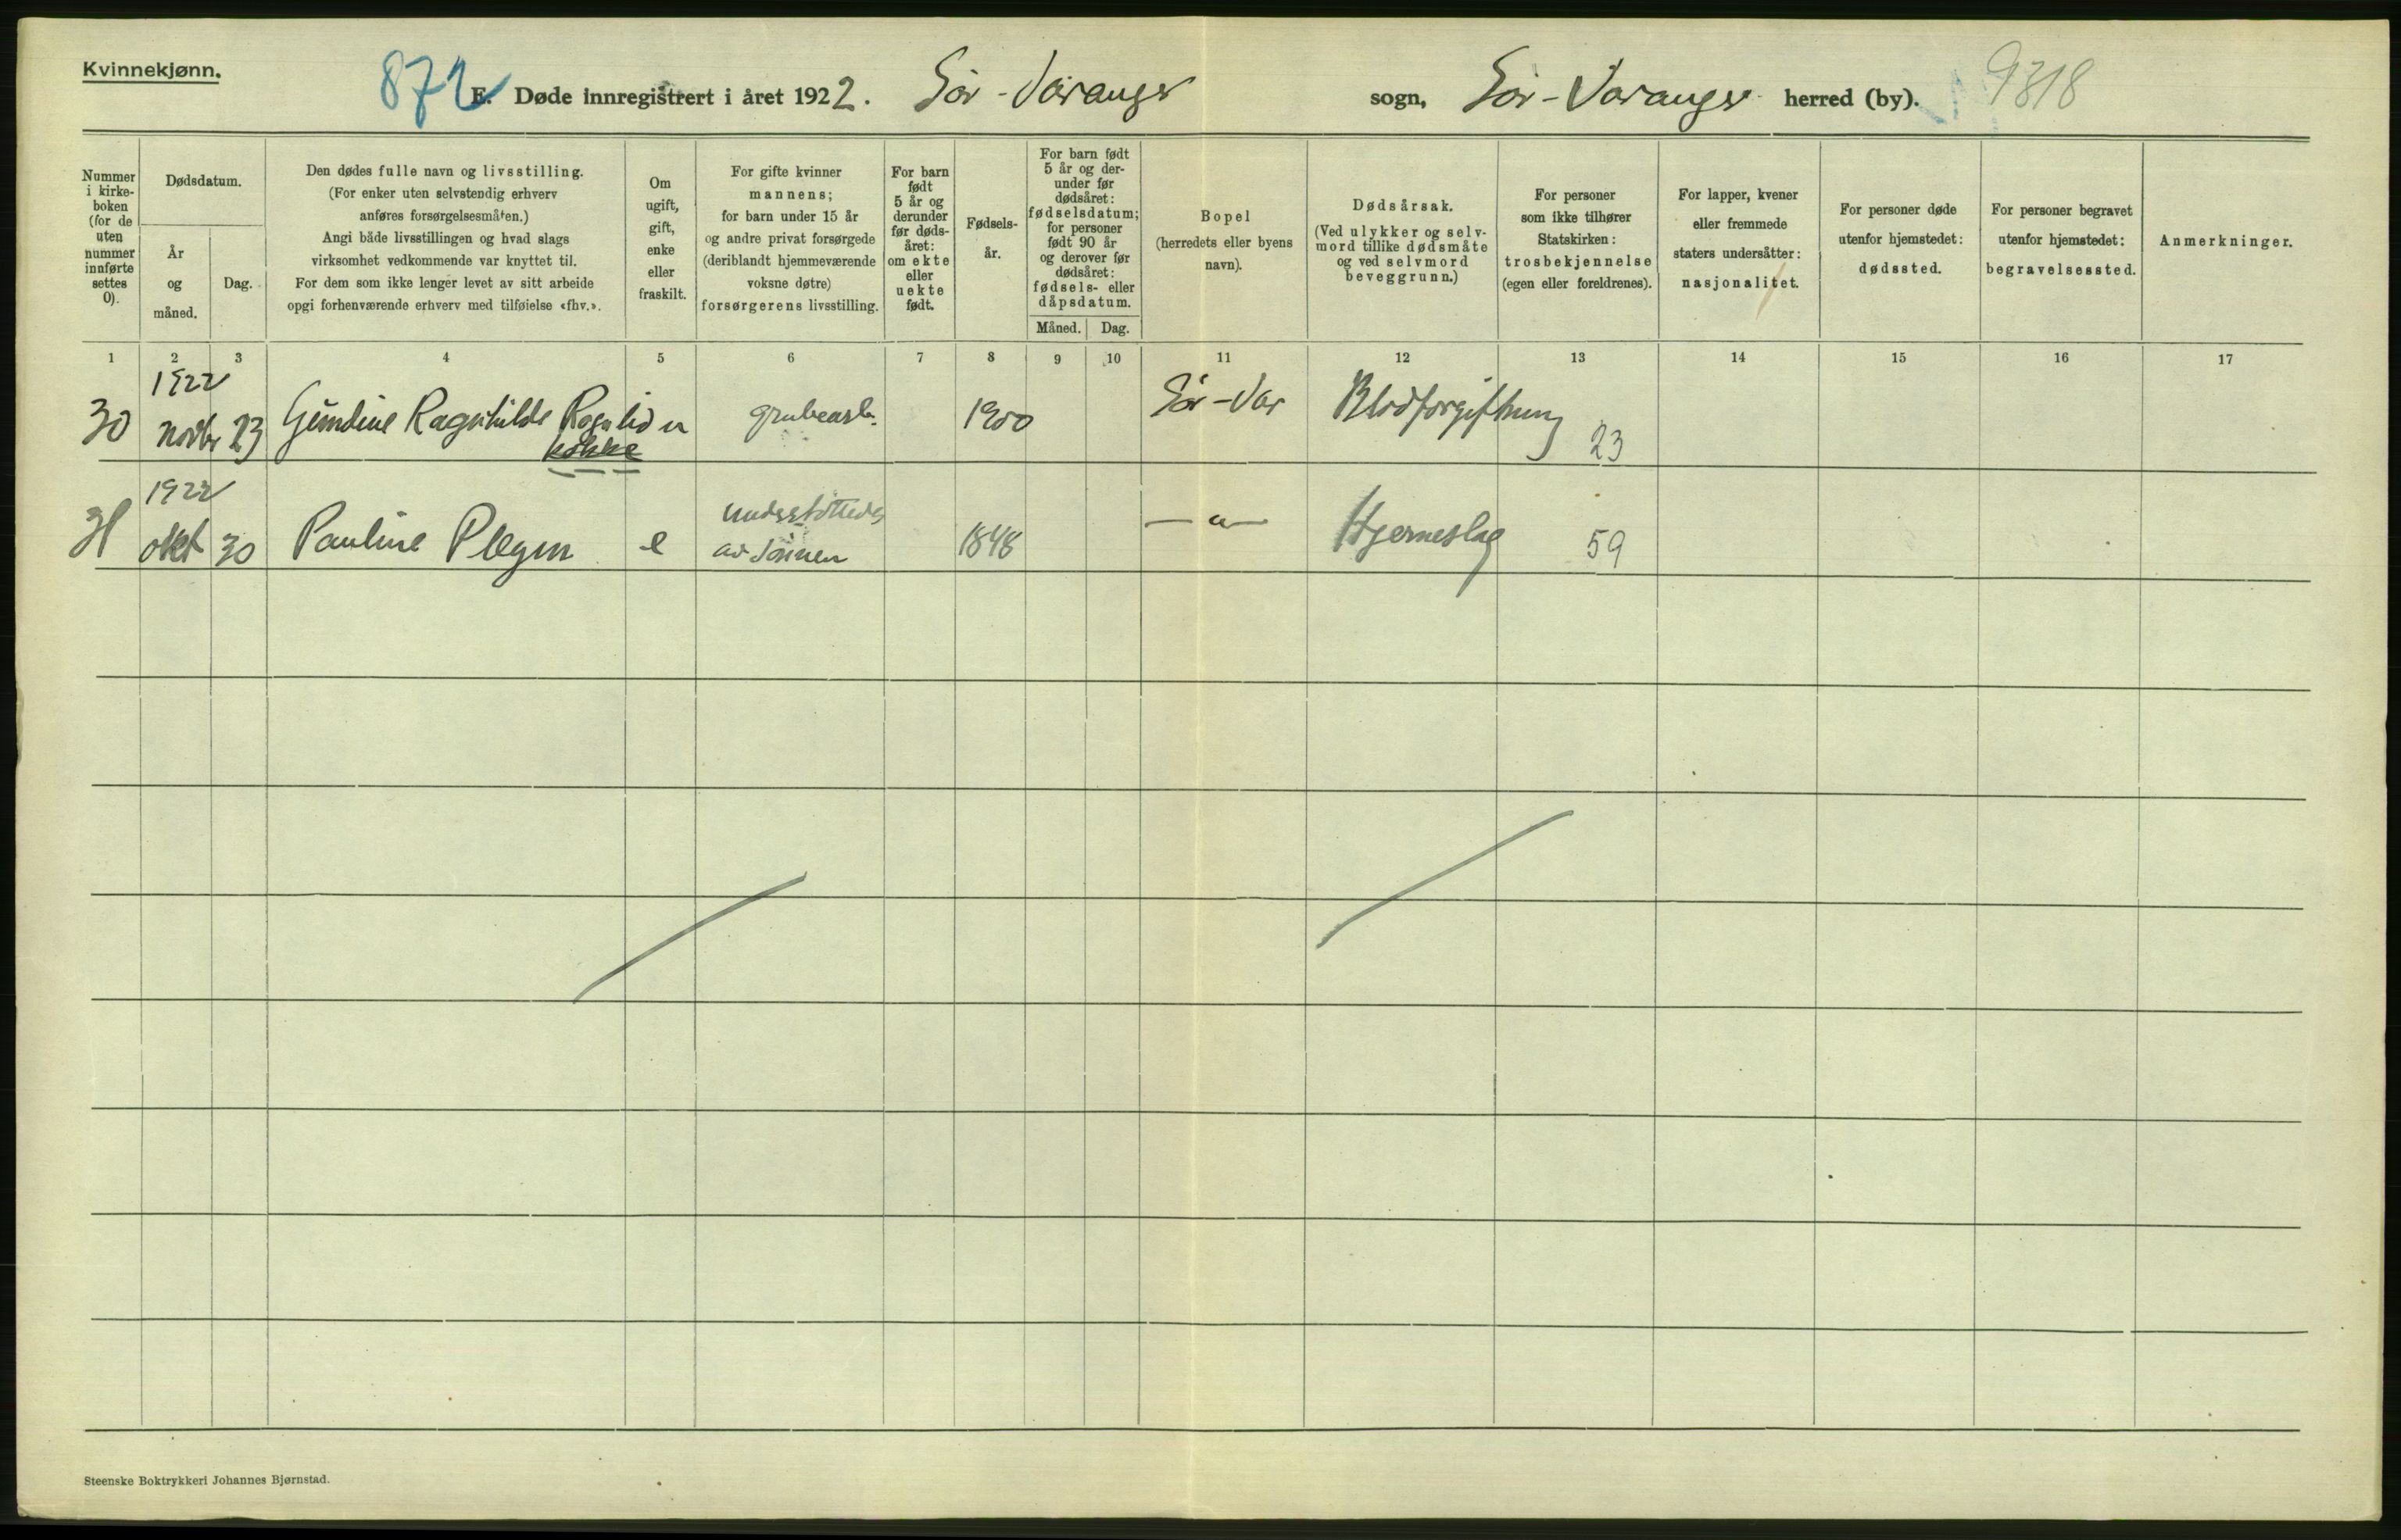 Kvinnekjønn.
872
E. Døde innregistrert i året 1922. Sør-Varanger sogn, Sør-Varanger herred (by).
9318
Nummer
i kirke-
boken
(for de
uten
nummer
innførte
settes
0).
Dødsdatum.
År
og
måned.
Dag.
Den dødes fulle navn og livsstilling.
(For enker uten selvstendig erhverv
anføres forsørgelsesmåten.)
Angi både livsstillingen og hvad slags
virksomhet vedkommende var knyttet til.
For dem som ikke lenger levet av sitt arbeide
opgi forhenværende erhverv med tilføielse «fhv.».
Om
ugift,
gift,
enke
eller
fraskilt.
For gifte kvinner
mannens;
for barn under 15 år
og andre privat forsørgede
(deriblandt hjemmeværende
voksne døtre)
forsørgerens livsstilling.
For barn
født
5 år og
derunder
før døds-
året:
om ekte
eller
uekte
født.
Fødsels-
år.
For barn født
5 år og der-
under før
dødsåret:
fødselsdatum;
for personer
født 90 år
og derover før
dødsåret:
fødsels- eller
dåpsdatum.
Måned. Dag.
Bopel
(herredets eller byens
navn).
Dødsårsak.
(Ved ulykker og selv-
mord tillike dødsmåte
og ved selvmord
beveggrunn.)
For personer
som ikke tilhører
Statskirken:
trosbekjennelse
(egen eller foreldrenes).
For lapper, kvener
eller fremmede
staters undersåtter:
nasjonalitet.
For personer døde
utenfor hjemstedet:
dødssted.
For personer begravet
utenfor hjemstedet:
begravelsessted.
Anmerkninger.
1 2 3 4 5 6 7 8 9 10 11 12 13 14 15 16 17
1922
30 novbr 23 Gundine Ragnhilde Rognlid u grubearb. 1900 Sør-Var Blodforgiftning 23
kokke
1922
31 okt 30 Pauline Plegm e understøttedes 1848 — " — Hjerneslag 59
av sønnen
Steenske Boktrykkeri Johannes Bjørnstad.